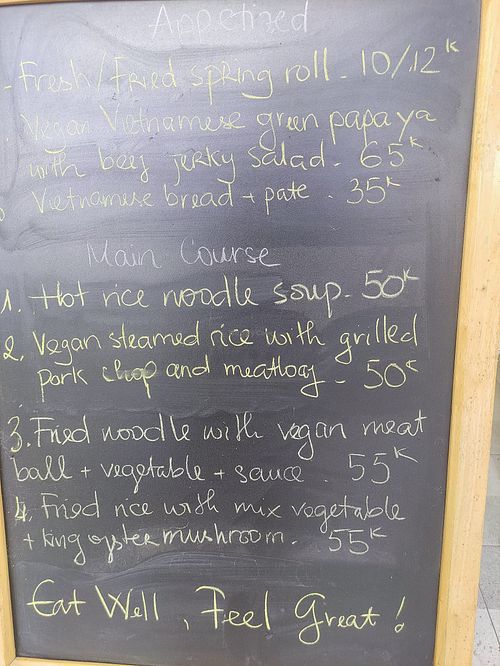 Appetized
- Fresh/Fried spring roll - 10/12K
Vegan Vietnamese green papaya
with beef jerky salad - 65K
Vietnamese bread + pate . 35K
Main Course
1. Hot rice noodle soup - 50K
2. Vegan steamed rice with grilled
pork chop and meatloaf - 50K
3. Fried noodle with vegan meat
ball + vegetable + sauce . 55K
4. Fried rice with mix vegetable
+ king oyster mushroom. 55K
Eat Well, Feel Great!